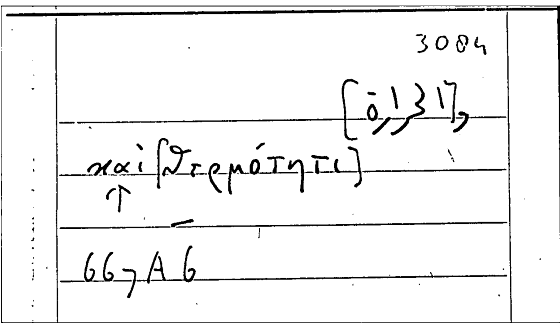 3084
[ō,1,31],
καὶ [θερμότητι]
↑
66, A 6